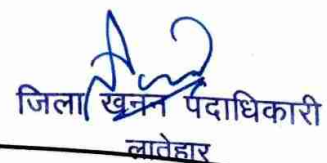 जिला खनन पदाधिकारी
लातेहार